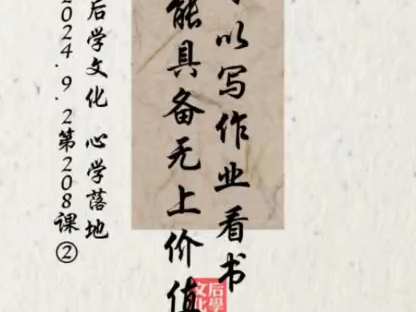 以写作业看书
能具备无上价值
后学文化 心学落地
2024.9.2第208课②
后學
文化